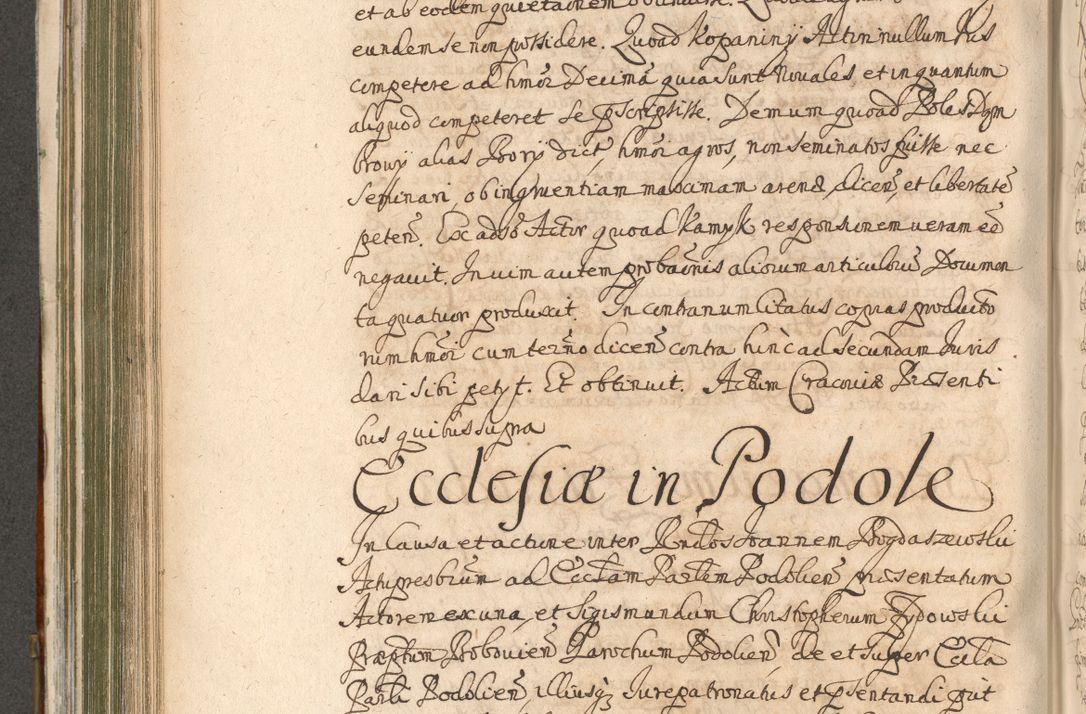 et ab eodem quietationem
eundem se non possidere. Quoad Kopaniny Actori nullum Ius
competere ad hmoi Decimã quia sunt Novales et in quantum
aliquod competeret se pscripsisse. Demum quoad Poles Dom
browy alias Bory dict, hmoi agros, non seminatos fuisse nec
seminari, ob ingruentiam maximam arenæ, dicen, et libertatẽ
peten. Ex adso Actor quoad Kamyk responsionem veram eẽ
negavit. In vim autem probaõnis aliorum articulorũ Documen
ta quatuor produxit. In contrarium Citatus copias producto
rum hmoi cum terno dicen contra hinc ad secundam Iuris
dari sibi petyt. Et obtinuit. Actum Cracoviæ Præsenti
bus quibus supra
Ecclesiæ in Podole
In Causa et actione inter Rndos Ioannem Bogdaszewski
Actu presbrum ad Ecclam Parlem Podolien præsentatum
Actorem ex una, et Sigismundum Christopherum Zydowski
Præptum Bobovien Parochum Podolien de et super Eccla
Parli Podolien, illiusq Iurepatronatus et psentandi put